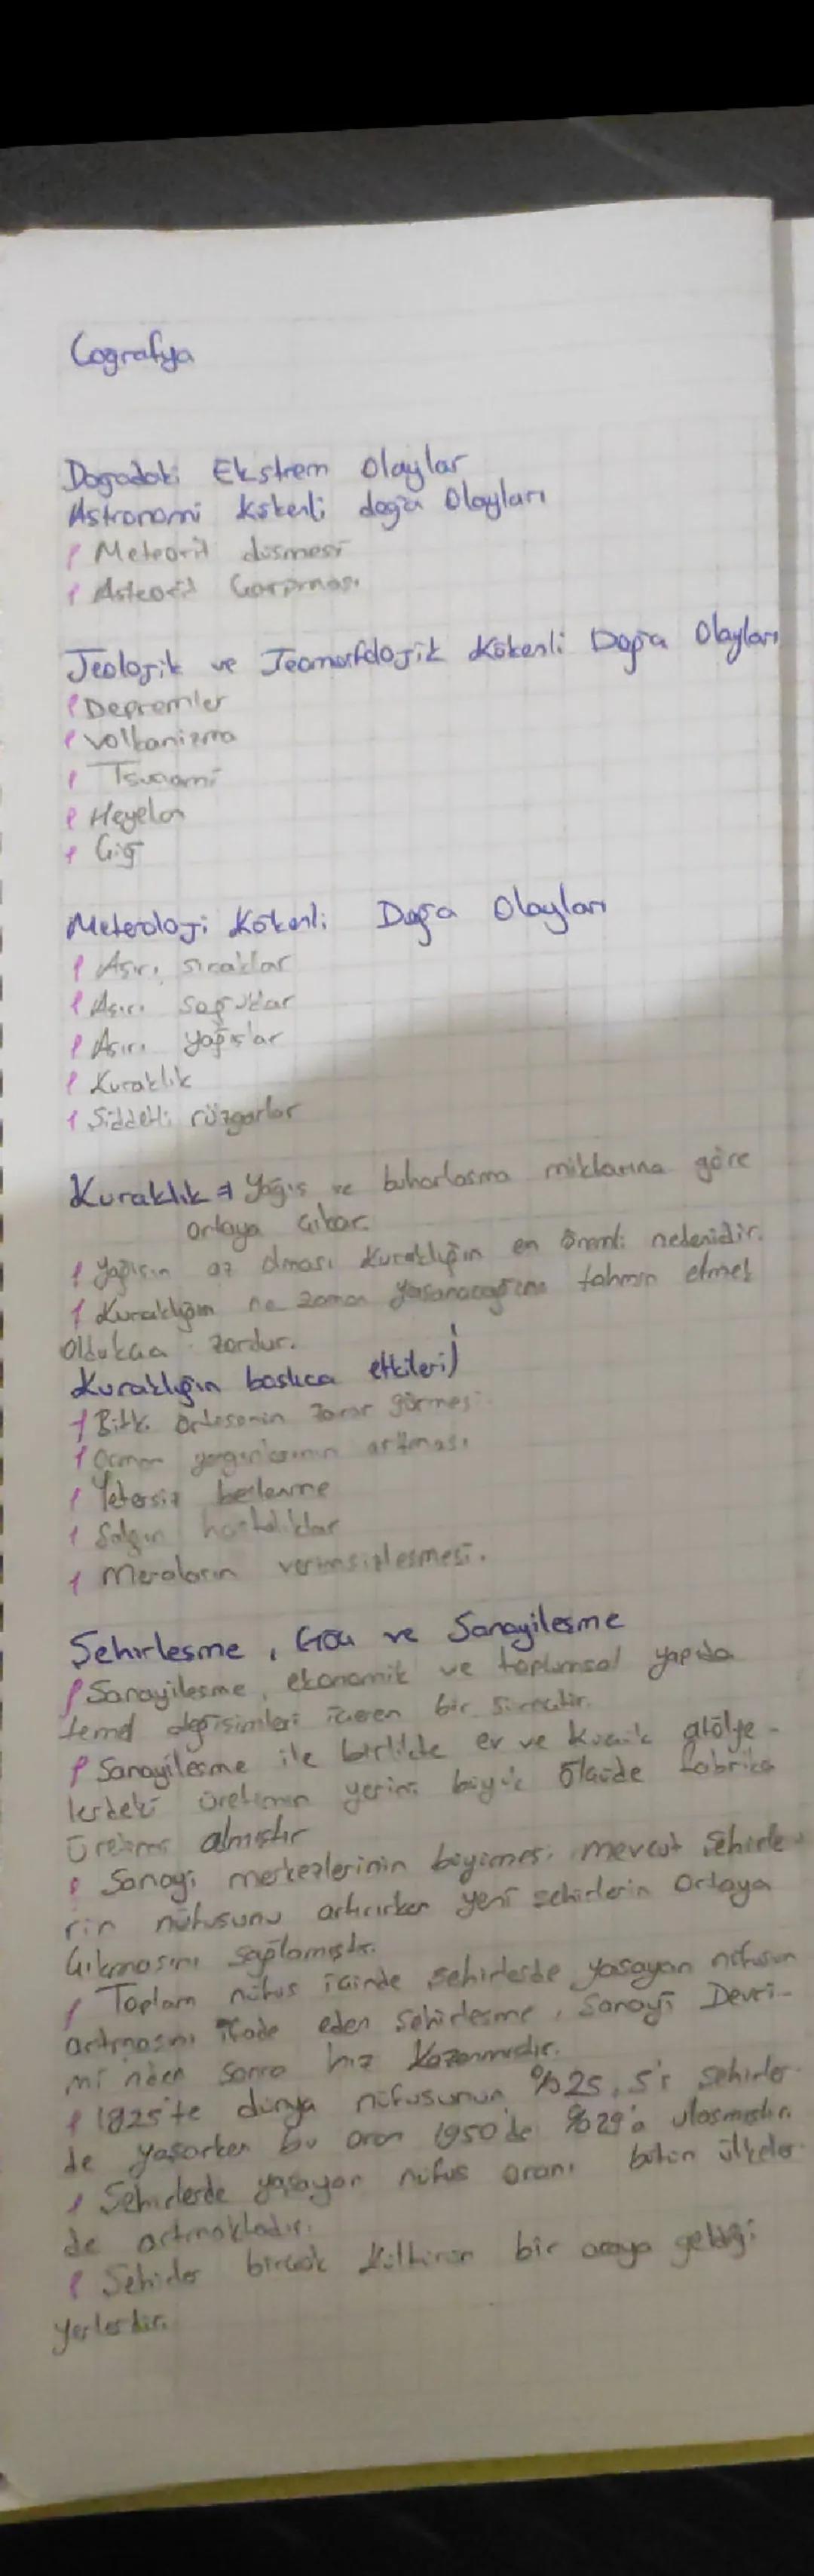 Cografya
Dogadaki Ekstrem Olaylar
Astronomi Kökenli doğa Olayları
Meteorit düsmesi
Asteorit Carpması
Jeolojik ve Jeomorfolojik Kökenli Doğa Olayları
Depremler
Volkanizma
Tsunami
Heyelan
Cığ
Meteroloji Kökenli Doğa Olayları
Aşırı sıcaklar
Aşırı soğuklar
Aşırı yağışlar
Kuraklık
Siddetli rüzgarlar
Kuraklık → Yağıs ve buharlasma miktarına göre
ortaya cıkar.
Yağısın az olması Kuraklığın en önemli nedenidir.
Kuraklığın ne zaman yasanacağını tahmin etmek
oldukca zordur.
Kuraklığın baslıca etkileri
Bitki örtüsünün zarar görmesi
Orman yangınlarının artması
Yetersiz beslenme
Salgın hastalıklar
Meraların verimsizlesmesi.
Sehirlesme, Göc ve Sanayilesme
Sanayilesme, ekonomik ve toplumsal yapıda
temel değisimleri iceren bir sürectir.
Sanayilesme ile birlikte ev ve kücük atölye-
lerdeki üretimin yerini büyük ölcüde fabrika
üretimi almıstır
Sanayi merkezlerinin büyümesi mevcut sehirle-
rin nüfusunu artırırken yeni sehirlerin ortaya
cıkmasını sağlamıstır.
Toplam nüfus icinde sehirlerde yasayan nüfusun
artmasını ifade eden sehirlesme, Sanayi Devri-
mi'nden sonra hız kazanmıstır.
1825'te dünya nüfusunun %25,5'i sehirler-
de yasarken bu oran 1950'de %29'a ulasmıstır.
Sehirlerde yasayan nüfus oranı bütün ülkeler-
de artmaktadır.
Sehirler bircok kültürün bir araya geldiği
yerlerdir.